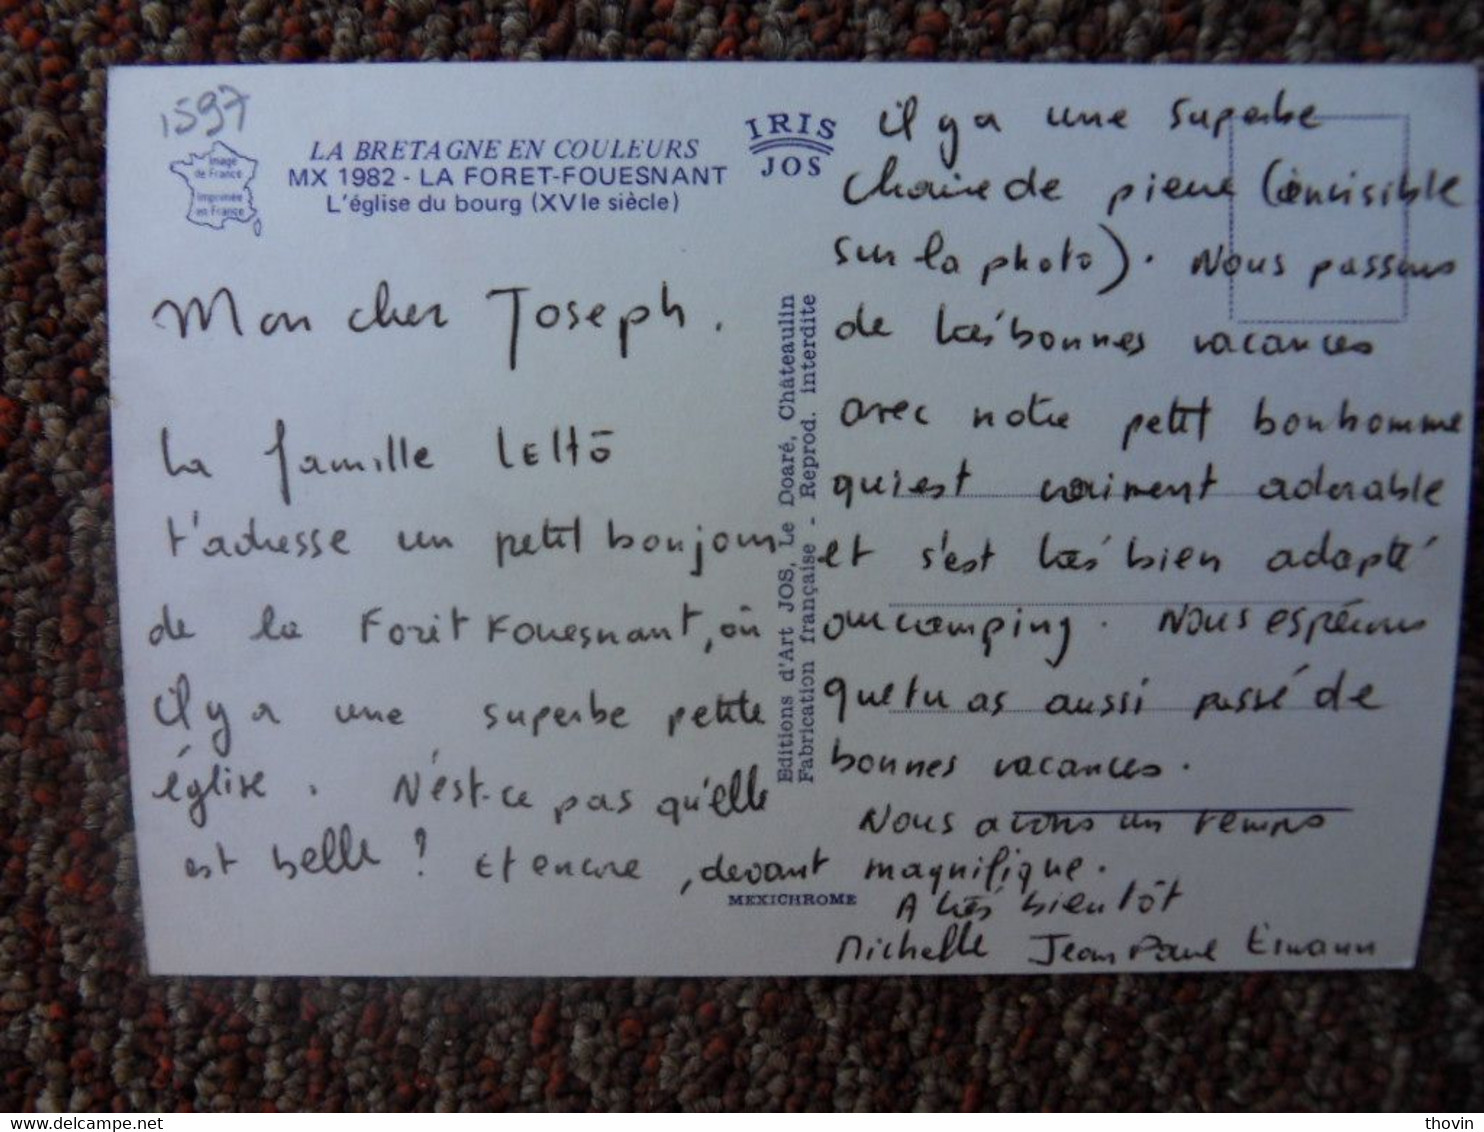 1597
Image
de France
Imprimée
en France
LA BRETAGNE EN COULEURS
MX 1982 - LA FORET-FOUESNANT
L'église du bourg (XVIe siècle)
IRIS
JOS
Mon cher Joseph,
La famille
t'adresse un petit bonjour
de la Forêt Fouesnant, où
il y a une superbe petite
église. N'est-ce pas qu'elle
est belle ? Et encore, devant
Editions d'Art JOS, Le Doaré, Châteaulin
Fabrication française - Reprod. interdite
MEXICHROME
il y a une superbe
chaire de pierre (invisible
sur la photo). Nous passons
de très bonnes vacances
avec notre petit bonhomme
qui est vraiment adorable
et s'est très bien adapté
au camping. Nous espérons
que tu as aussi passé de
bonnes vacances.
Nous avons un temps
magnifique.
A très bientôt
Michelle Jean Paul Erwann
thovin